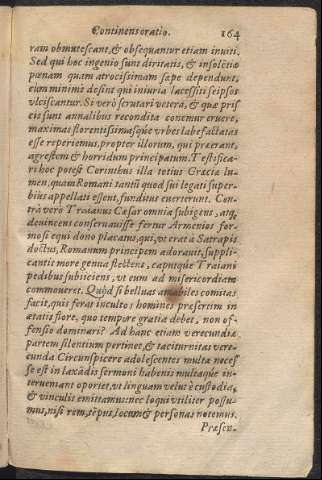 Continens oratio. 164
ram obmutescant, & obsequantur etiam inuiti.
Sed qui hoc ingenio sunt diritatis, & insolẽtiæ
pœnam quam atrocissimam sæpe dependunt,
cum minimè desint qui iniuria lacessiti seipsos
vlciscantur. Si verò scrutari vetera, & quæ pris
cis sunt annalibus recondita conemur eruere,
maximas florentissimasq́ue vrbes labefactatas
esse reperiemus, propter illorum, qui præerant,
agrestem & horridum principatum. Testifica-
ri hoc potest Corinthus illa totius Græcia lu-
men, quam Romani tantũ quod sui legati super-
biùs appellati essent, funditus euerterunt. Con-
trà verò Traianus Cæsar omnia subigens, atq́,
deuincens conseruauisse fertur Armenios for-
mosi equi dono placatus, qui, vt erat à Satrapis
doctus, Romanum principem adorauit, suppli-
cantis more genua flectens, caputq́ue Traiani
pedibus subiiciens, vt eum ad misericordiam
commoueret. Quòd si belluas amabiles comitas
facit, quis ferat incultos homines præsertim in
ætatis flore, quo tempore gratia debet, non of-
fensio dominari? Ad hanc etiam verecundiæ
partem silentium pertinet, & taciturnitas vere-
cunda Circunspicere adolescentes multa neces
se est in laxãdis sermoni habenis multaq́ue in-
terueniant oportet, vt linguam velut è custodia,
& vinculis emittamus: nec loqui vtiliter possu-
mus, nisi rem, tẽpus, locum & personas notemus.
Præsen-